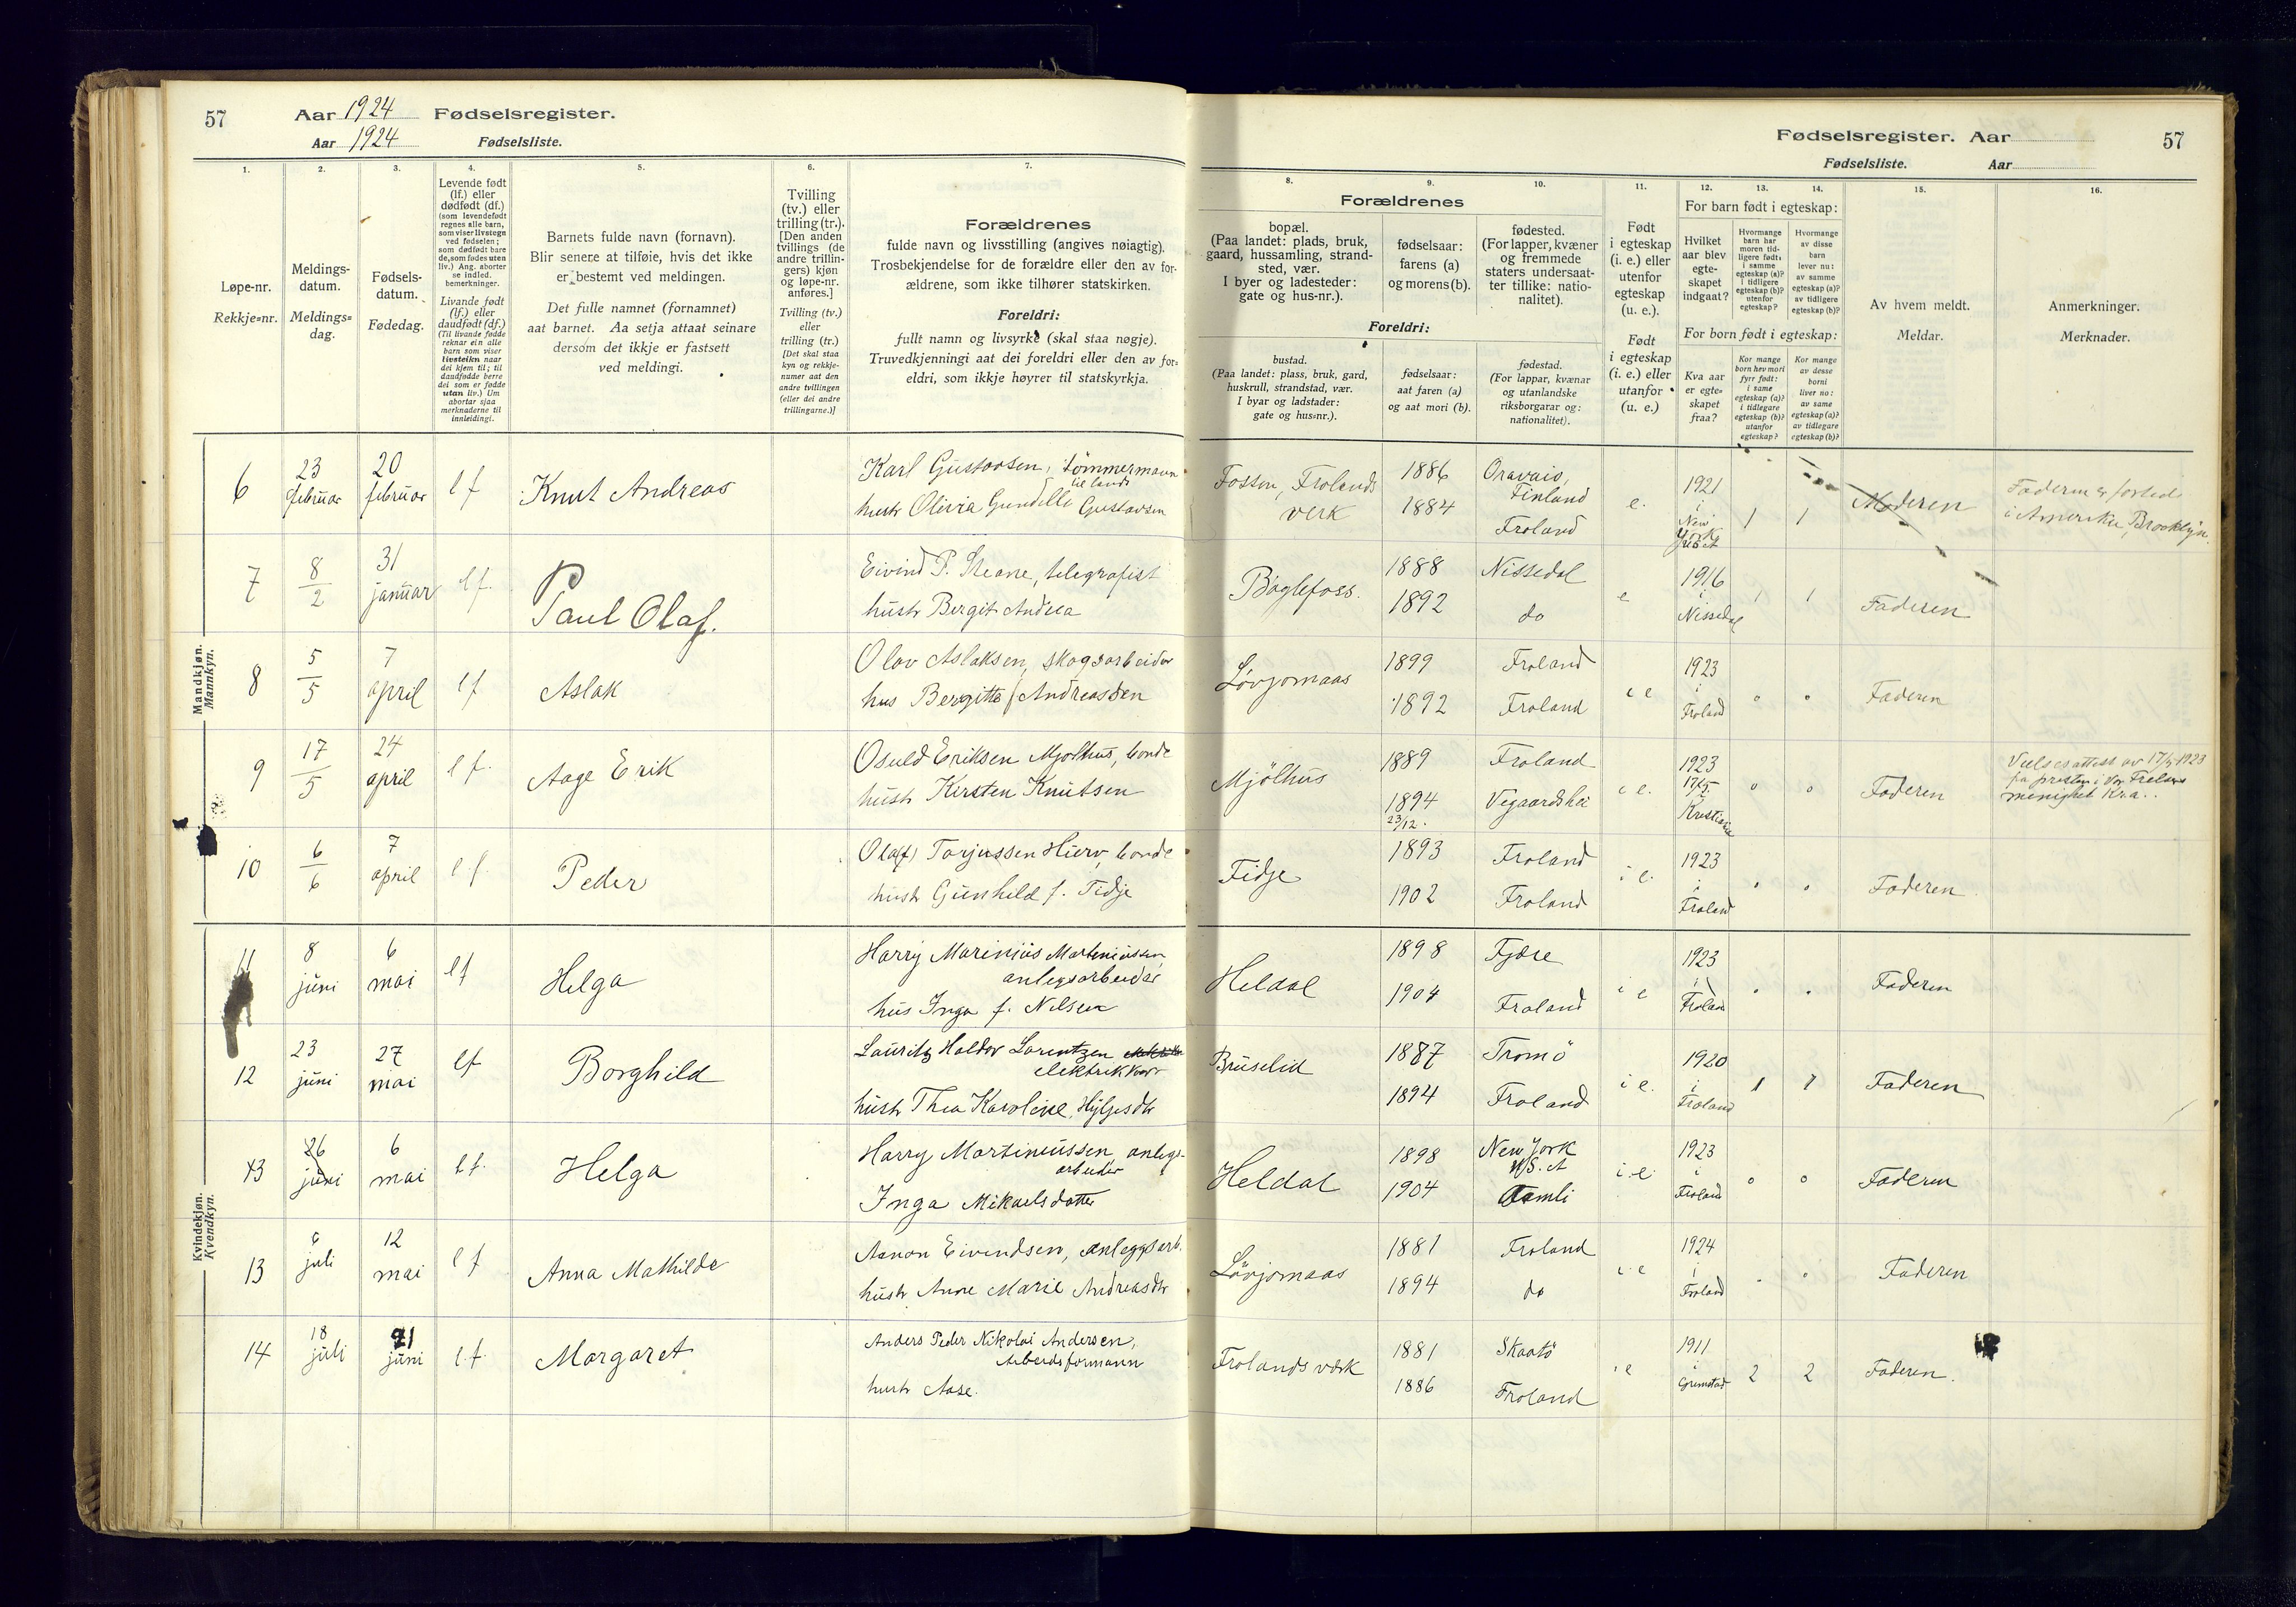 57
Aar 1924 Fødselsregister.
Aar 1924 Fødselsliste.
1.
2.
3.
4.
5.
6.
7.
Løpe-nr.
Rekkje-nr.
Meldings-
datum.
Meldings-
dag.
Fødsels-
datum.
Fødedag.
Levende født
(lf.) eller
dødfødt (df.)
(som levendefødt
regnes alle barn,
som viser livstegn
ved fødselen;
som dødfødt bare
de, som fødes uten
liv.) Ang. aborter
se indled.
bemerkninger.
Livande født
(lf.) eller
daudfødt (df.)
(Til livande fødde
reknar ein alle
barn som viser
livsteikn naar
dei kjem til; til
daudfødde berre
dei som er fødde
utan liv.) Um
abortar sjaa
merknaderne til
innleidingi.
Barnets fulde navn (fornavn).
Blir senere at tilføie, hvis det ikke
er bestemt ved meldingen.
Det fulle namnet (fornamnet)
aat barnet. Aa setja attaat seinare
dersom det ikkje er fastsett
ved meldingi.
Tvilling
(tv.) eller
trilling (tr.).
[Den anden
tvillings (de
andre trillin-
gers) kjøn
og løpe-nr.
anføres.]
Tvilling (tv.)
eller
trilling (tr.)
[Det skal staa
kyn og rekkje-
numer aat den
andre tvillingen
(eller dei andre
trillingarne.)]
Forældrenes
fulde navn og livsstilling (angives nøiagtig).
Trosbekjendelse for de forældre eller den av for-
ældrene, som ikke tilhører statskirken.
Foreldri:
fullt namn og livsyrke (skal staa nøgje).
Truvedkjenningi aat dei foreldri eller den av for-
eldri, som ikkje høyrer til statskyrkja.
Fødselsregister. Aar
57
Fødselsliste. Aar
8.
9.
10.
11.
12.
13.
14.
15.
16.
Forældrenes
bopæl.
(Paa landet: plads, bruk,
gaard, hussamling, strand-
sted, vær.
I byer og ladesteder:
gate og hus-nr.).
fødselsaar:
farens (a)
og morens (b).
fødested.
(For lapper, kvæner
og fremmede
staters undersaat-
ter tillike: natio-
nalitet).
Foreldri:
bustad.
(Paa landet: plass, bruk, gard,
huskrull, strandstad, vær.
I byar og ladstader:
gate og hus-nr.).
fødselsaar:
aat faren (a)
og aat mori (b).
fødestad.
(For lappar, kvænar
og utanlandske
riksborgarar og:
nationalitet).
Født
i egteskap
(i. e.) eller
utenfor
egteskap
(u. e.).
Født
i egteskap
(i. e.) eller
utanfor
egteskap
(u. e.)
For barn født i egteskap:
Hvilket
aar blev
egte-
skapet
indgaat?
Hvormange
barn har
moren tid-
ligere født:
i samme
egteskap (a)?
i tidligere
egteskap (b)?
utenfor
egteskap?
Hvormange
av disse
barn
lever nu:
av samme
egteskap (a)?
av tidligere
egteskap (b)?
For born født i egteskap:
Kva aar
er egte-
skapet
fraa?
Kor mange
born hev mori
fyrr født:
i same
egteskap (a)?
i tidlegare
egteskap (b)?
utanfor
egteskap?
Kor mange
av desse
borni
liver no:
av same
egteskap (a)?
av tidlegare
egteskap (b)?
Av hvem meldt.
Meldar.
Anmerkninger.
Merknader.
Mandkjøn.
Mannkyn.
6 23 februar 20 februar lf Knut Andreas
Karl Gustavsen, tømmermann
til lands
hustr Olivia Gundelle Gustavsen
Fossen, Frolands
verk
1886
1884
Oravais,
Finland
Froland
e.
1921
i
New
York
1 1 Moderen
Faderen er fortid
i Amerika, Brooklyn.
7 8/2 31 januar lf. Paul Olaf.
Eivind P. Steane, telegrafist
hustr Bergit Andrea
Bøylefoss.
1888 Nissedal
1892 do
e
1916
i
Nissedal
1 1 Faderen
8 5/5 7 april lf Aslak
Olav Aslaksen, skogsarbeider
hus Bergitte f Andreassen
Løvjomaas
1899 Froland
1892 Froland
i e
1923
i
Froland
° ° Faderen
9 17/5 24 april lf. Aage Erik
Osuld Eriksen Mjølhus, bonde
hustr Kirsten Knutsen
Mjølhus
1889 Froland
1894 Vegaardshei
23/12.
i e.
1923
17/5
i
Kristiania
° ° Faderen
Vielsesattest av 17/5 1923
fra presten i Vor Frelsers
menighet Kr.a..
10 6/6 7 april lf. Peder
Ola(f) Torjussen Hurv, bonde
hustr Gunhild f. Fidje
Fidje
1893 Froland
1902 Froland
i e.
1923
i
Froland
° ° Faderen
Kvindekjøn.
Kvendkyn.
11 8 juni 6 mai lf Helga
Harry Marinius Martiniussen
anlegsarbeider
hus Inga f. Nilsen
Heldal
1898 Fjære
1904 Froland
i e
1923
i
Froland
. . Faderen
12 23 juni 27 mai lf Borghild
Lauritz Haldor Lorentzen
elektriker
hustr Thea Karoline
Bruselid
1887 Tromö
1894 Froland
i e.
1920
i
Froland
1 1 Faderen
13 26 juni 6 mai lf. Helga
Harry Martiniussen, anlegs-
arbeider
Inga Mikaelsdatter
Heldal
1898 New York
U.S.A
1904 Aamli
i e.
1923
i
Froland
° ° Faderen
13 6 juli 12 mai lf Anna Mathilde
Aanon Eivindsen, anleggsarb.
hustr Anne Marie Andreasdtr
Løvjomaas
1881 Froland
1894 do
i e
1924
i
Froland
. . Faderen
14 18 juli 21 juni lf. Margaret
Anders Peder Nikolai Andersen,
Arbeidsformann
hustr Aase.
Frolands verk
1881 Skaatö
1886 Froland
i e
1911
i
Grimstad
2 2 Faderen.